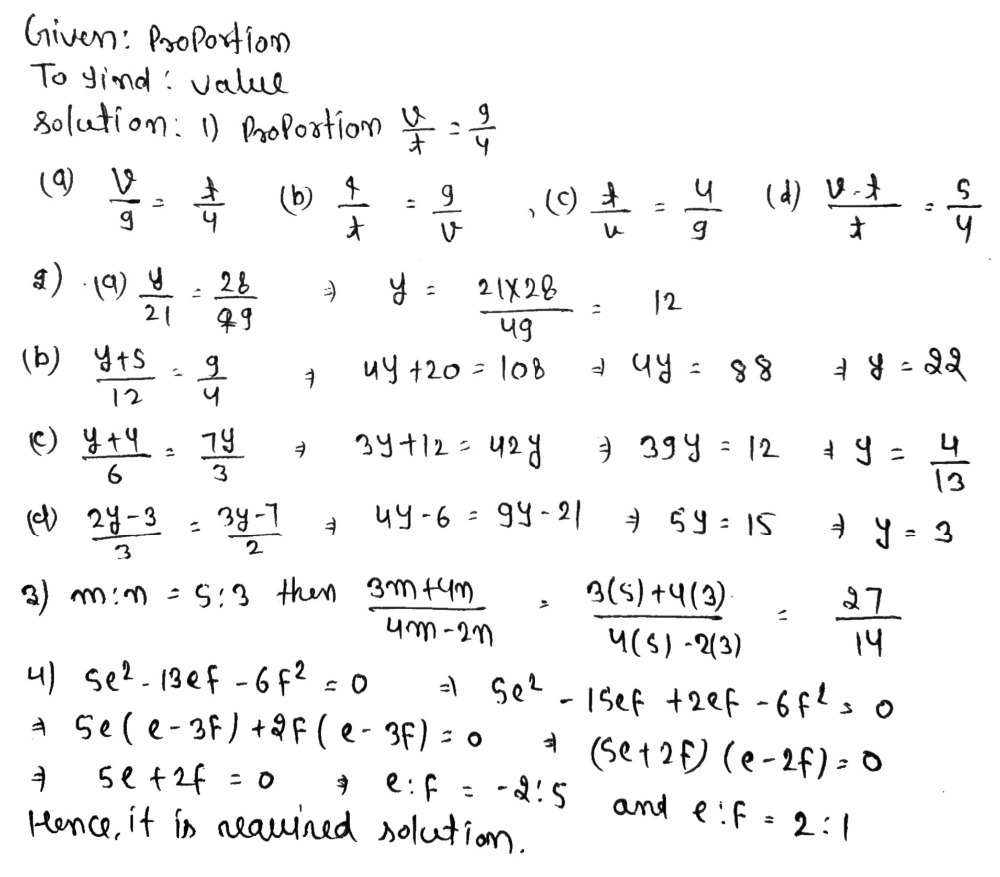 Given: Proportion
To find: value
Solution: 1) Proportion v/t = 9/4
(a) v/9 = t/4 (b) 4/t = 9/v , (c) t/v = 4/9 (d) v-t/t = 5/4
2) (a) y/21 = 28/49 ⇒ y = 21×28/49 = 12
(b) y+5/12 = 9/4 ⇒ 4y+20 = 108 ⇒ 4y = 88 ⇒ y = 22
(c) y+4/6 = 7y/3 ⇒ 3y+12 = 42y ⇒ 39y = 12 ⇒ y = 4/13
(d) 2y-3/3 = 3y-7/2 ⇒ 4y-6 = 9y-21 ⇒ 5y = 15 ⇒ y = 3
3) m:n = 5:3 then 3m+4n/4m-2n = 3(5)+4(3)/4(5)-2(3) = 27/14
4) 5e²-13ef-6f² = 0 ⇒ 5e²-15ef+2ef-6f² = 0
⇒ 5e(e-3f)+2f(e-3f) = 0 ⇒ (5e+2f)(e-2f) = 0
⇒ 5e+2f = 0 ⇒ e:f = -2:5 and e:f = 2:1
Hence, it is required solution.